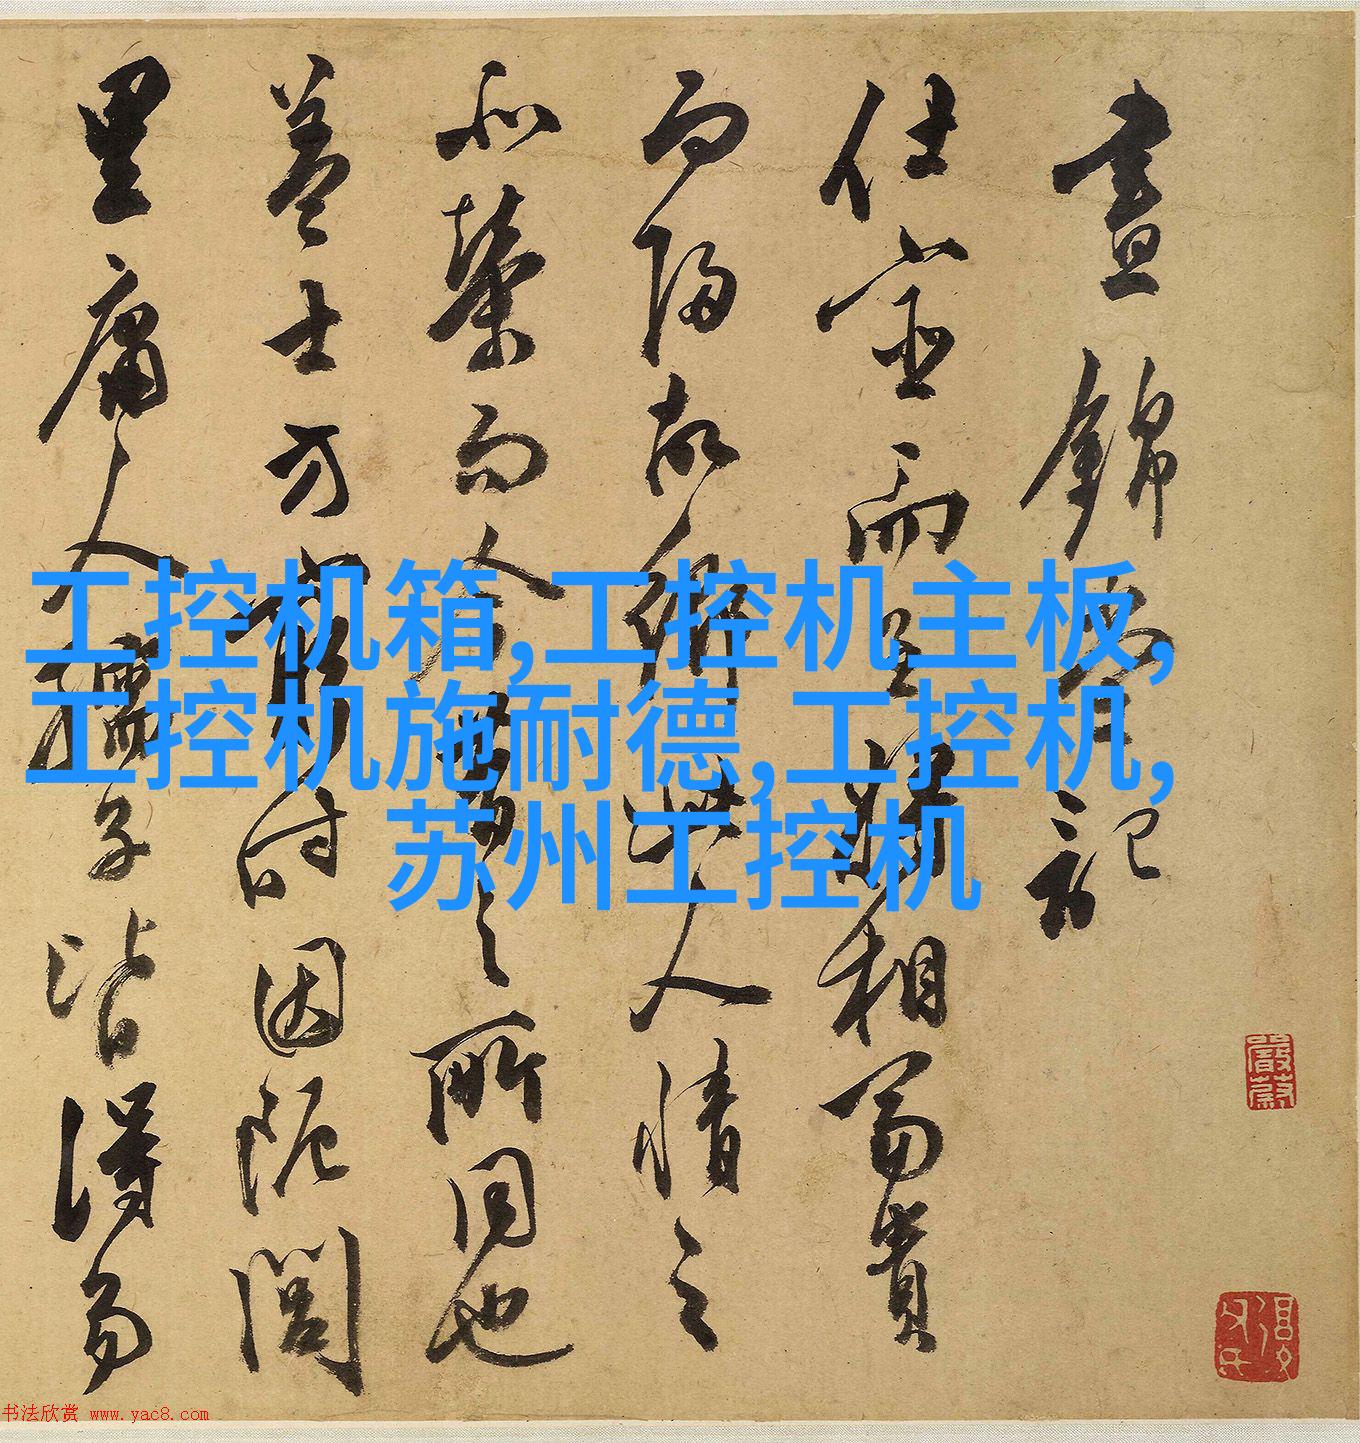 晝錦堂記
仕宦而至將相富貴
而歸故鄉此人情之
所榮而今昔之所同也
蓋士方窮時困阨閭
里庸人孺子皆得易
工控机箱,工控机主板,
工控机施耐德,工控机,
苏州工控机
嚴蔚
书法欣赏 www.yac8.com